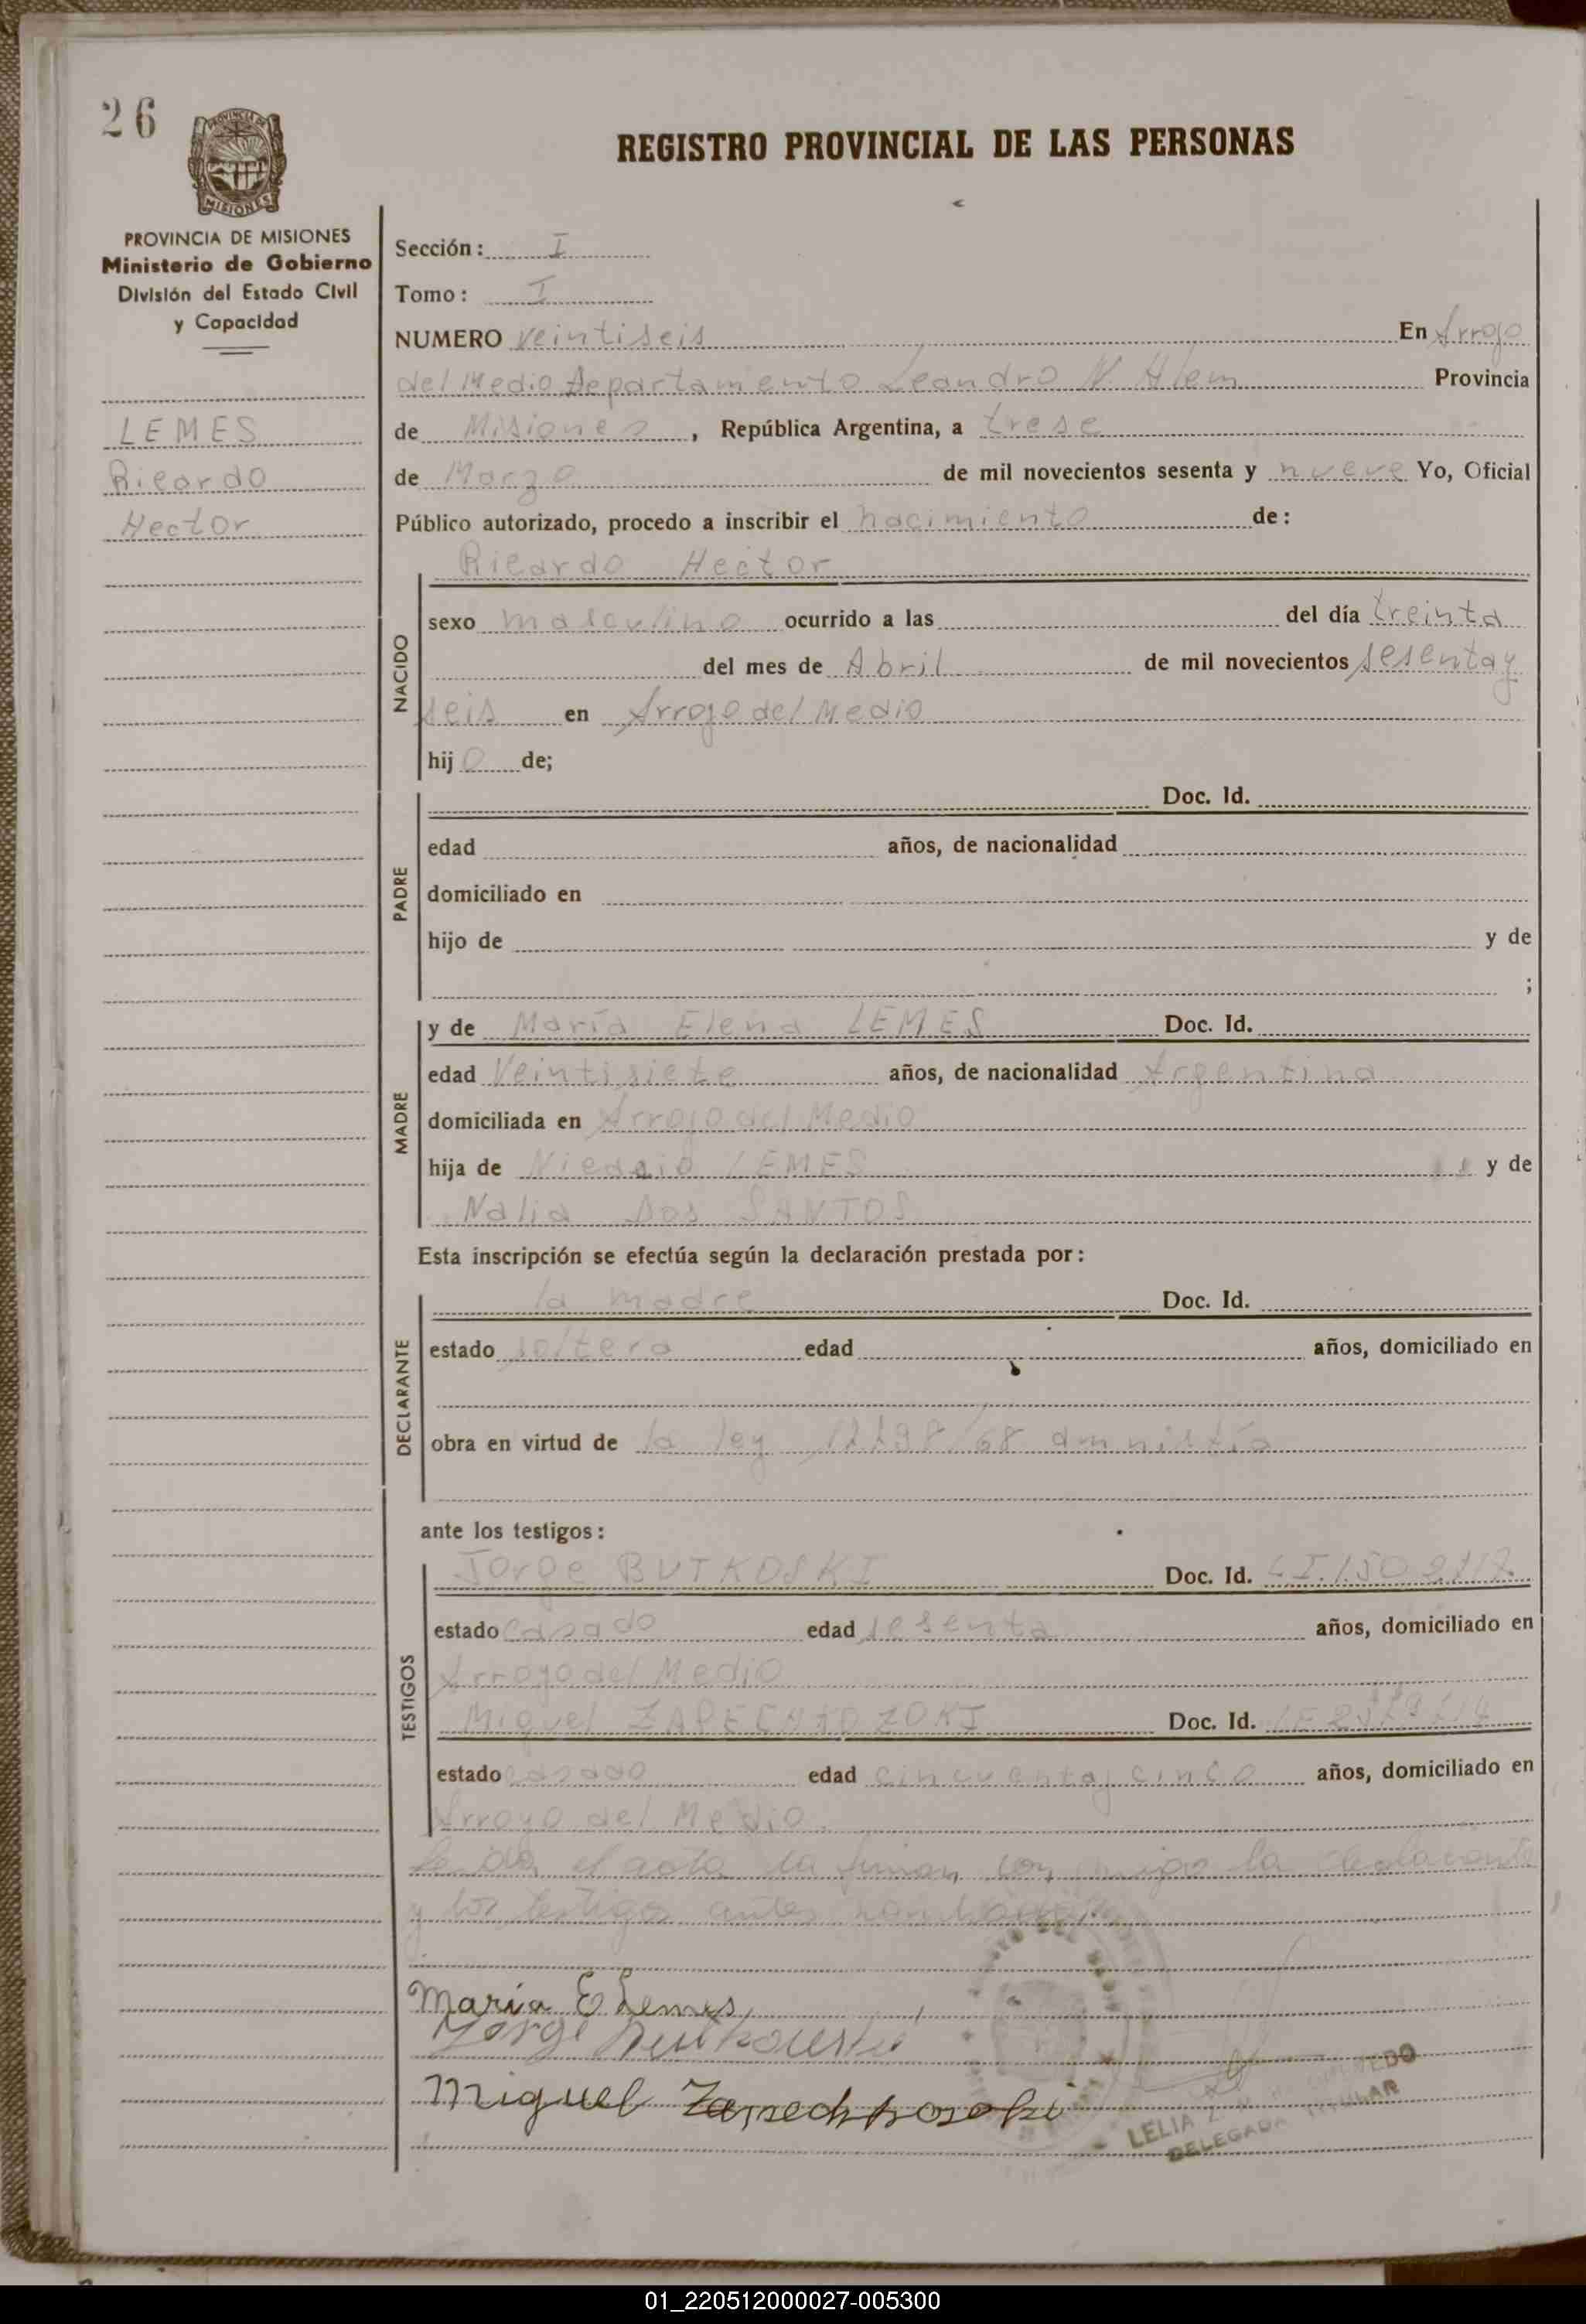 26
PROVINCIA DE MISIONES
MISIONES
PROVINCIA DE MISIONES
Ministerio de Gobierno
División del Estado Civil
y Capacidad
LEMES
Ricardo
Hector
REGISTRO PROVINCIAL DE LAS PERSONAS
Sección: I
Tomo: I
NUMERO veintiseis En Arroyo
del Medio Departamento Leandro N. Alem Provincia
de Misiones, República Argentina, a trese
de Marzo de mil novecientos sesenta y nueve Yo, Oficial
Público autorizado, procedo a inscribir el nacimiento de:
Ricardo Hector
NACIDO
sexo masculino ocurrido a las del día treinta
del mes de Abril de mil novecientos sesenta y
seis en Arroyo del Medio
hijo de;
PADRE
Doc. Id.
edad años, de nacionalidad
domiciliado en
hijo de y de
;
MADRE
y de María Elena LEMES Doc. Id.
edad Veintisiete años, de nacionalidad Argentina
domiciliada en Arroyo del Medio
hija de LEMES y de
Nalia Dos SANTOS
Esta inscripción se efectúa según la declaración prestada por:
DECLARANTE
la madre Doc. Id.
estado soltera edad años, domiciliado en
obra en virtud de la ley amnistía
ante los testigos:
TESTIGOS
Jorge BUTKOSKI Doc. Id.
estado casado edad sesenta años, domiciliado en
Arroyo del Medio
Miguel Doc. Id.
estado casado edad cincuenta y cinco años, domiciliado en
Arroyo del Medio.
el acta la firman conmigo la declarante
y los testigos antes
Maria E Lemes
Jorge
Miguel
LELIA
DELEGADA TITULAR
01_220512000027-005300